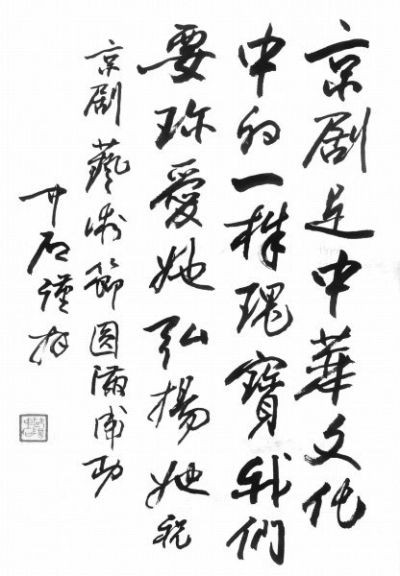 京剧是中華文化
中的一株瑰寶我們
要珍愛她弘揚她祝
京剧藝術節圓滿成功
中石謹